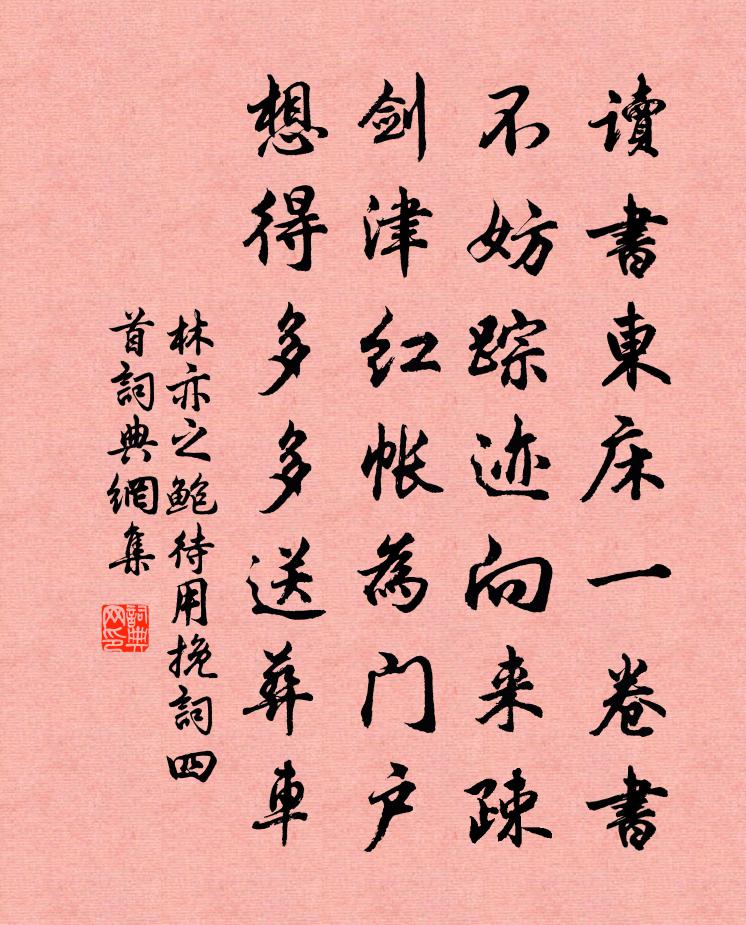 读書東床一卷書
不妨踪迹向来疎
剑津红帐為门户
想得多多送葬車
林亦之鲍待用挽詞四
首詞典網集
詞典網印